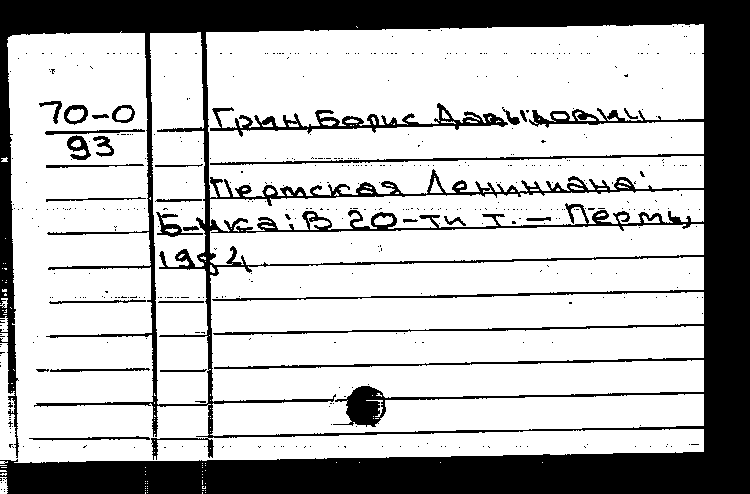 70-0
93
Грин, Борис Давыдович.
Пермская Лениниана:
Б-чка: В 20-ти т. — Пермь,
1984.